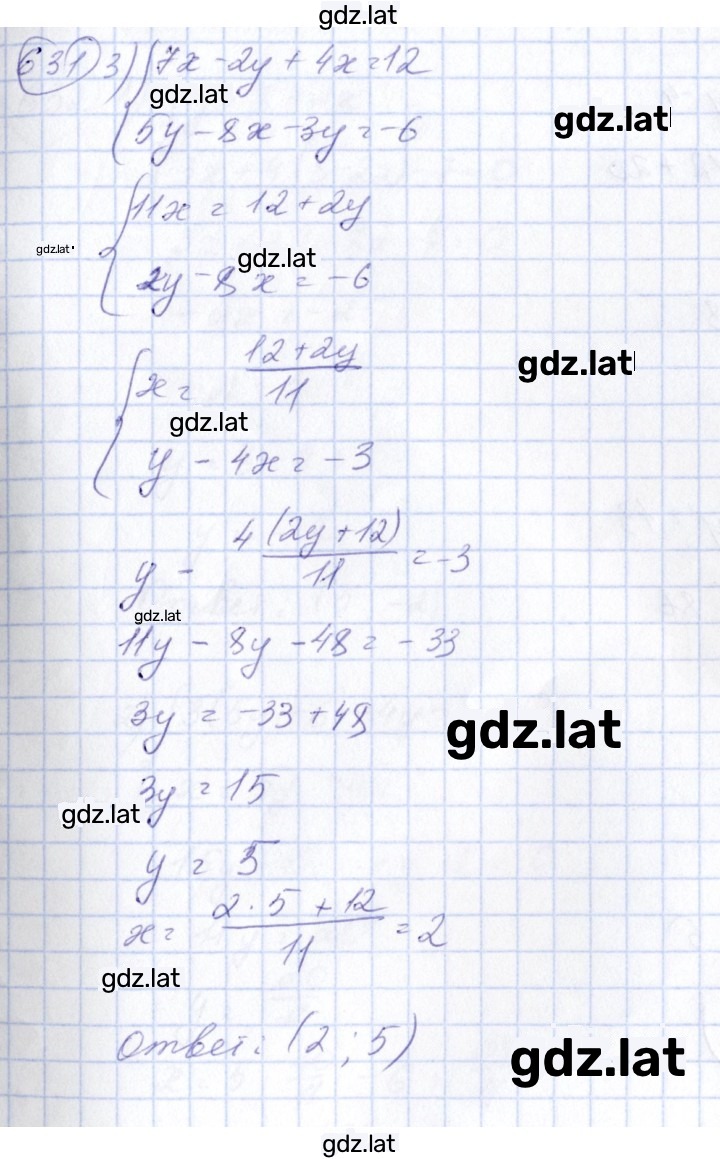 gdz.lat
631 3) { 7x - 2y + 4x = 12
gdz.lat
gdz.lat
5y - 8x - 3y = -6
{ 11x = 12 + 2y
gdz.lat
gdz.lat
2y - 8x = -6
{ x = (12 + 2y)/11
gdz.lat
gdz.lat
y - 4x = -3
y - 4(2y + 12)/11 = -3
gdz.lat
11y - 8y - 48 = -33
3y = -33 + 48
gdz.lat
3y = 15
gdz.lat
y = 5
x = (2 · 5 + 12)/11 = 2
gdz.lat
Ответ: (2; 5)
gdz.lat
gdz.lat